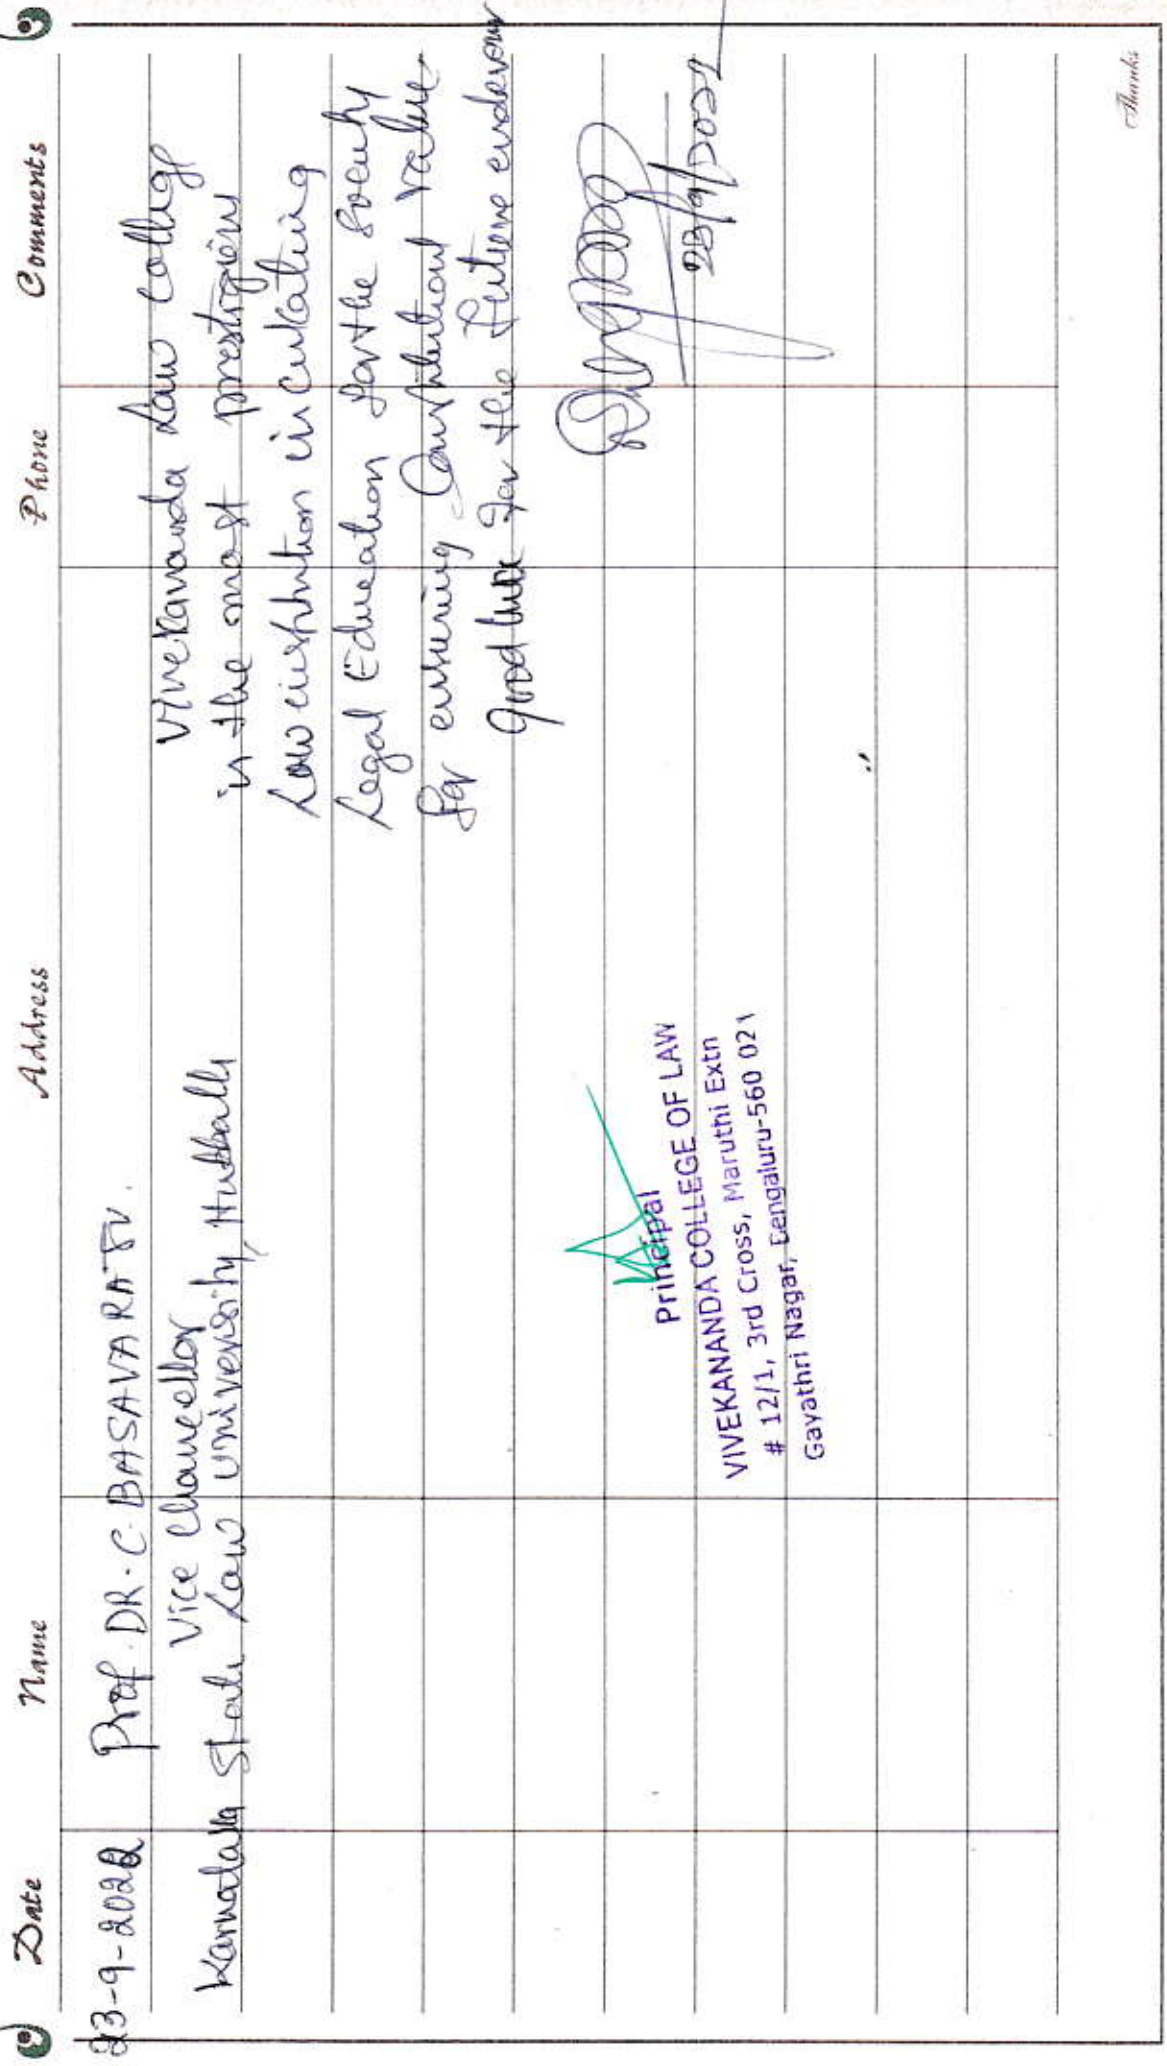 Date Name Address Phone Comments
23-9-2022 Prof. DR. C. BASAVARAJU.
Vice Chancellor
Karnataka State Law University, Hubballi
Vivekananda Law College
is the most prestigious
Law institution in culcating
Legal Education for the Society
for ensuring Constitutional values.
Good luck for the future endevour
23/9/2022
Principal
VIVEKANANDA COLLEGE OF LAW
# 12/1, 3rd Cross, Maruthi Extn
Gayathri Nagar, Bengaluru-560 021
Thanks